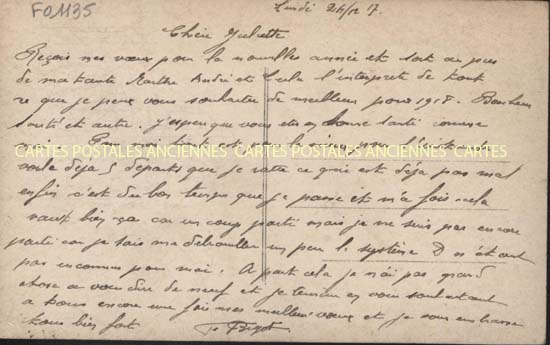 F01135
Lundi 24/12 17.
Chère Juliette
Reçois mes vœux pour la nouvelle année et soit auprès
de ma tante Marthe André et Lulu l'interpret de tout
ce que je peux vous souhaiter de meilleur pour 1918. Bonheur
santé et autre. J'espère que vous êtes en bonne santé comme
CARTES POSTALES ANCIENNES CARTES POSTALES ANCIENNES CARTES POSTALES ANCIENNES CARTES
voila déja 5 départs que je rate ce qui est déja pas mal
enfin c'est du bon temps que je passe et ma fois cela
vaut bien ça car un coup parti mais je ne suis pas encore
parti car je sais me débrouiller un peu le système D n'étant
pas inconnu pour moi. A part cela je n'ai pas grand
chose a vous dire de neuf et je termine en vous souhaitant
a tous encore une fois mes meilleurs vœux et je vous embrasse
tous bien fort